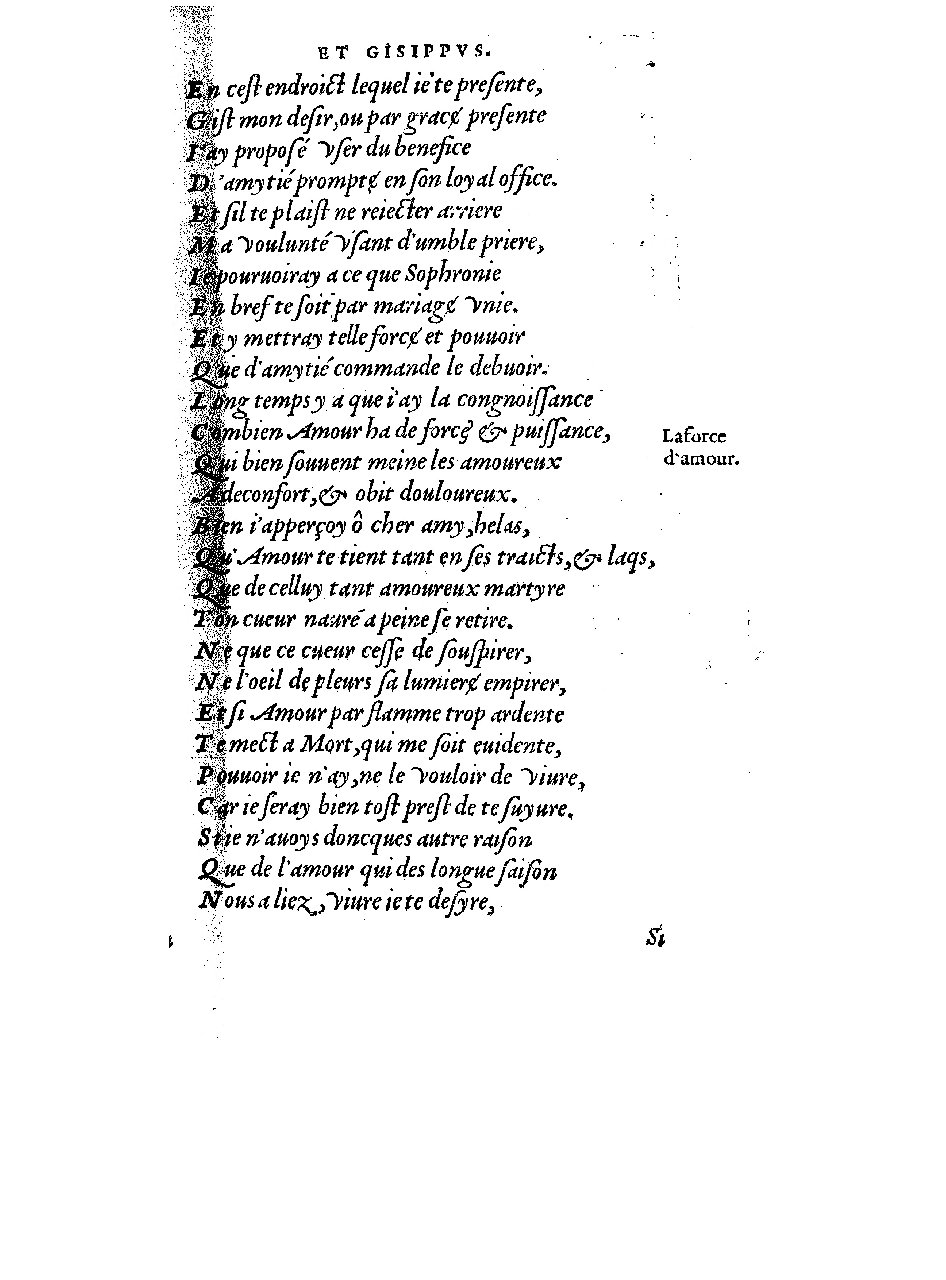 ET GISIPPVS.
En cest endroict lequel ie te presente,
Gist mon desir, ou par gracɇ presente
I'ay proposé vser du benefice
D'amytié promptɇ en son loyal office.
Et sil te plaist ne reiecter arriere
Ma voulunté vsant d'umble priere,
Ie pouruoiray a ce que Sophronie
En bref te soit par mariagɇ vnie.
Et y mettray telle forcɇ et pouuoir
Que d'amytié commande le debuoir.
Long temps y a que i'ay la congnoissance
Combien Amour ha de forcɇ & puissance,
La force
d'amour.
Qui bien souuent meine les amoureux
A deconfort, & obit douloureux.
Bien i'apperçoy ô cher amy, helas,
Qu'Amour te tient tant en ses traicts, & laqs,
Que de celluy tant amoureux martyre
Ton cueur nauré a peine se retire.
Ne que ce cueur cesse de souspirer,
Ne l'oeil de pleurs sa lumierɇ empirer,
Et si Amour par flamme trop ardente
Te mect a Mort, qui me soit euidente,
Pouuoir ie n'ay, ne le vouloir de viure,
Car ie seray bien tost prest de te suyure.
Si ie n'auoys doncques autre raison
Que de l'amour qui des longue saison
Nous a liez, viure ie te desyre,
Si